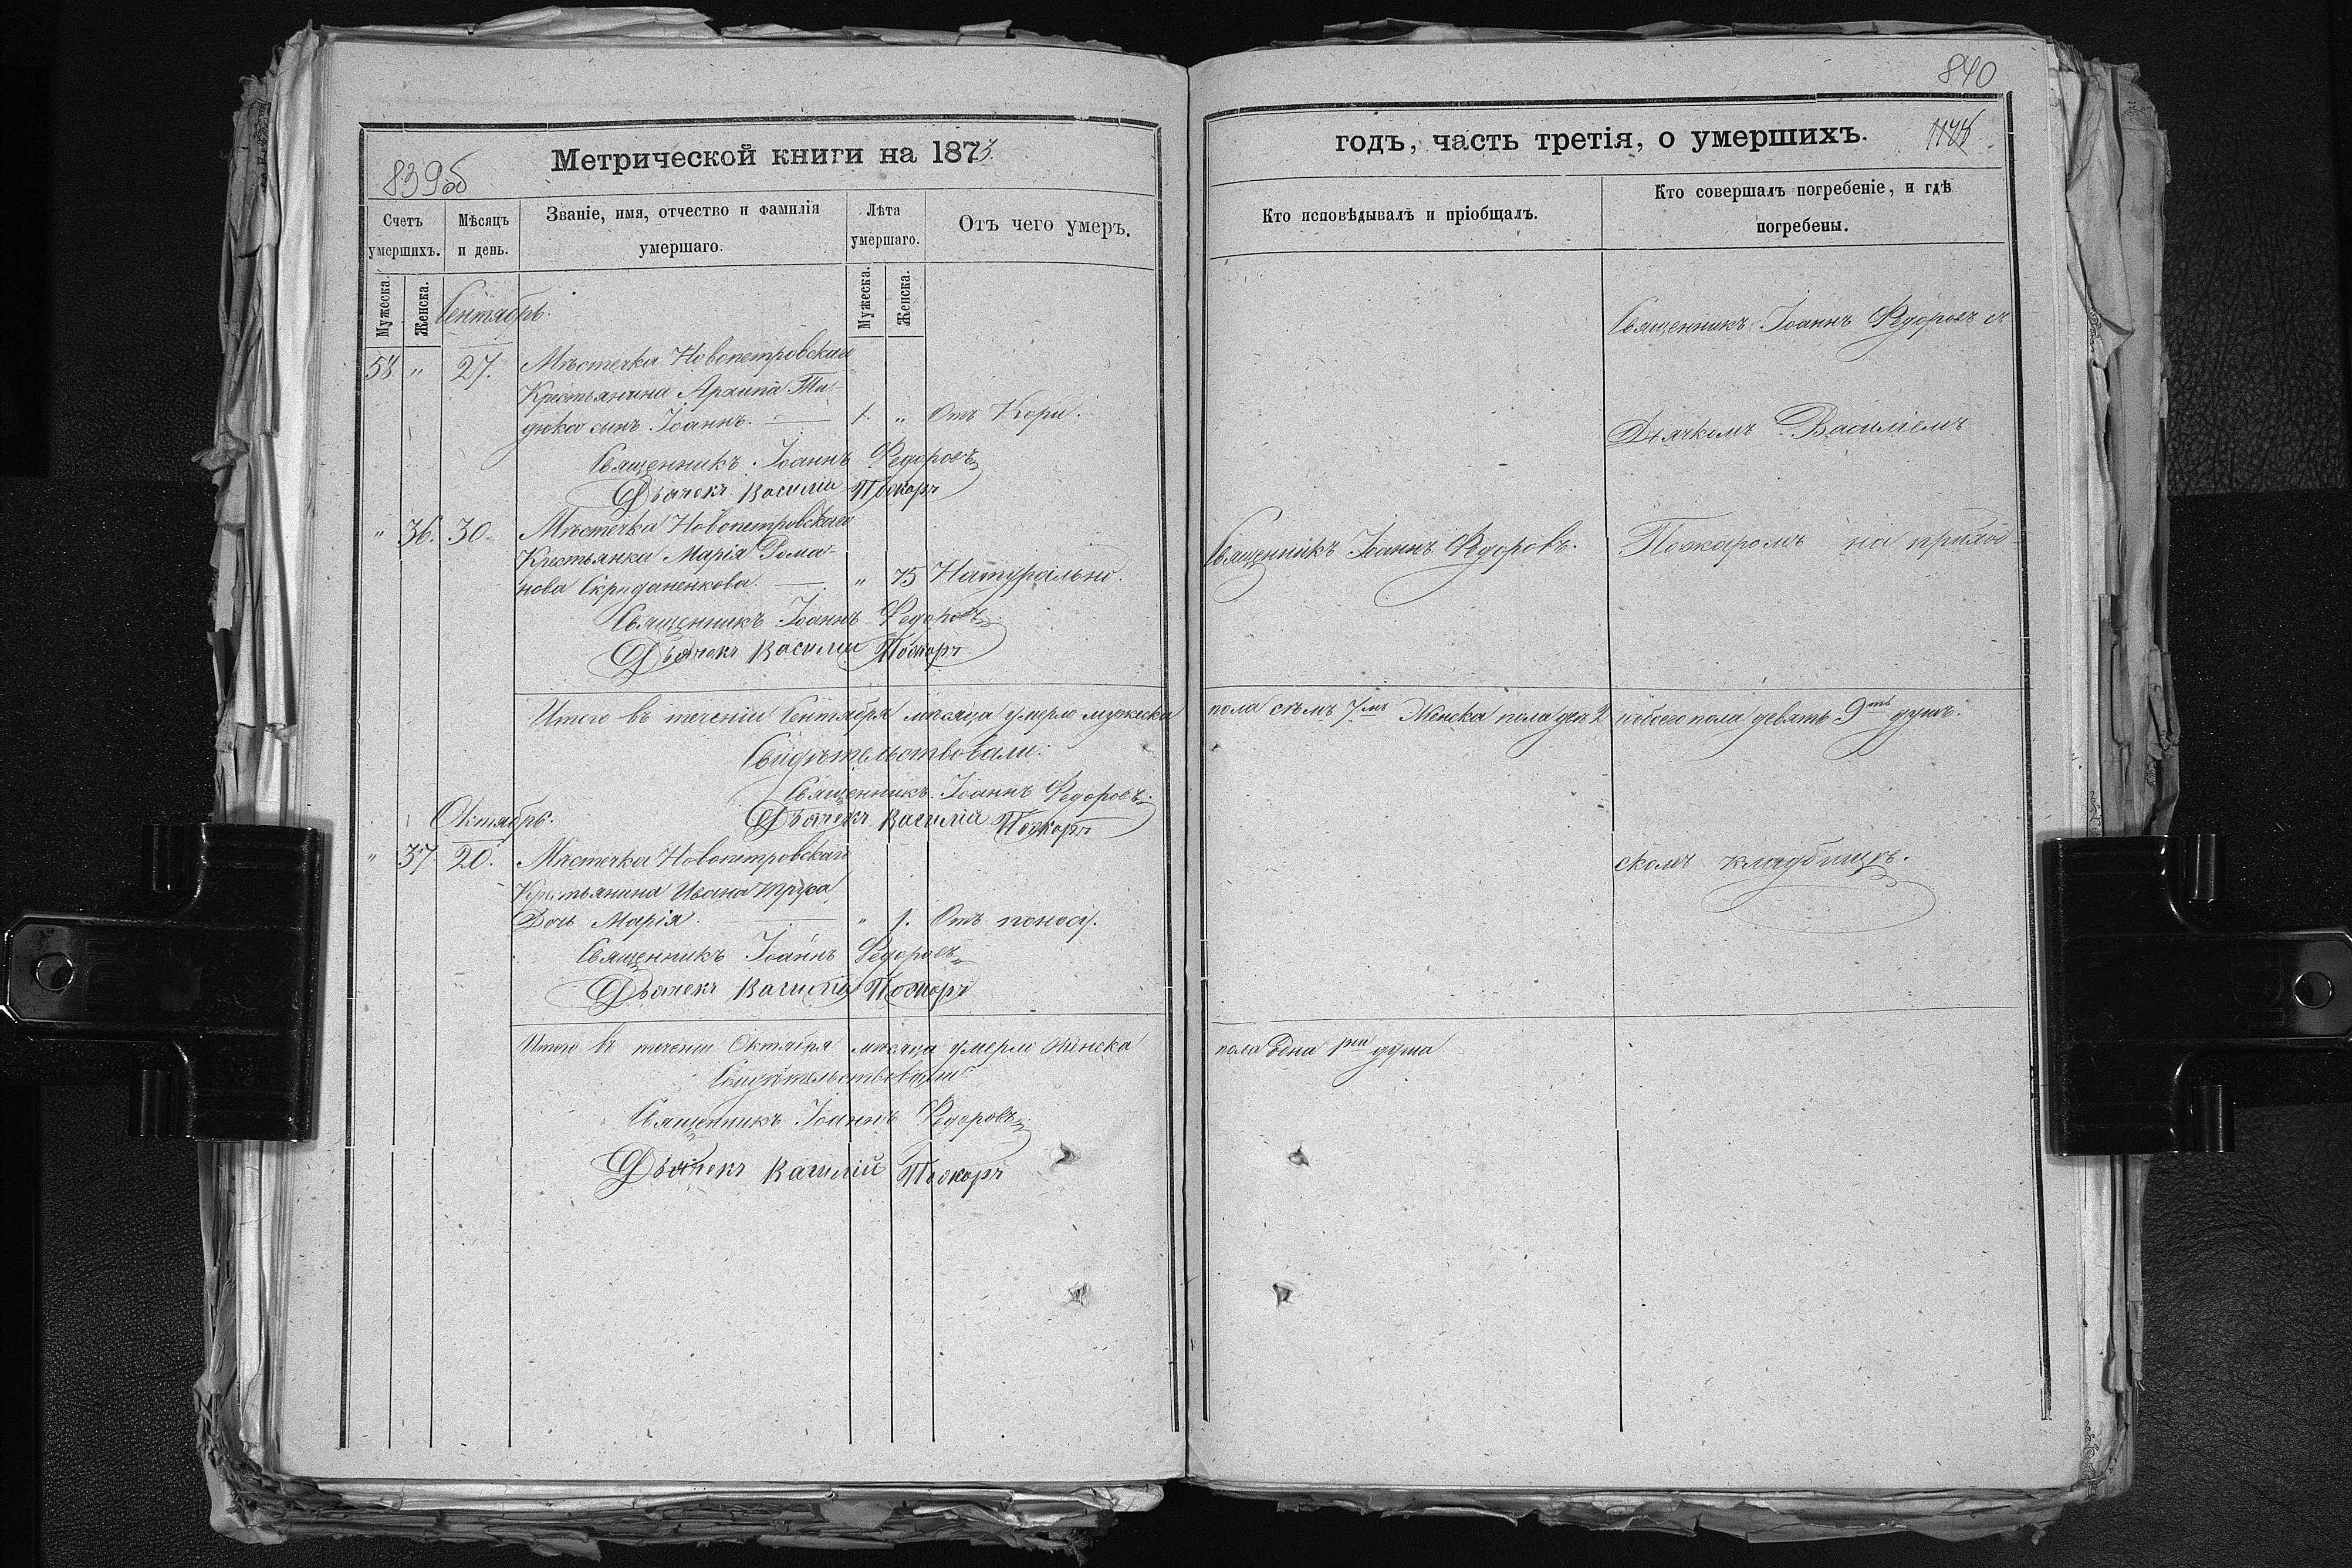 839об
Метрической книги на 1873
Счетъ умершихъ.
Мѣсяцъ и день.
Званіе, имя, отчество и фамилія умершаго.
Лѣта умершаго.
Отъ чего умеръ.
Мужеска.
Женска.
Мужеска.
Женска.
Сентябрь.
58 " 27. Мѣстечка Новопетровскаго
Крестьянина Архипа
сынъ Іоаннъ. — 1. " Отъ Кори.
Священникъ Іоаннъ Федоровъ
Дьячекъ Василій
" 36. 30. Мѣстечка Новопетровскаго
Крестьянка Марія Рома-
нова — " 75 Натурально.
Священникъ Іоаннъ Федоровъ
Дьячекъ Василій
Итого въ теченіи Сентября мѣсяца умерло мужеска
Свидѣтельствовали:
Священникъ Іоаннъ Федоровъ
Дьячекъ Василій
Октябрь.
" 37 20. Мѣстечка Новопетровскаго
Крестьянина Ивана
Дочь Марія. — " 1. Отъ поносу.
Священникъ Іоаннъ Федоровъ
Дьячекъ Василій
Итого въ теченіи Октября мѣсяца умерло женска
Свидѣтельствовали
Священникъ Іоаннъ Федоровъ
Дьячекъ Василій
840
годъ, часть третія, о умершихъ.
Кто исповѣдывалъ и пріобщалъ.
Кто совершалъ погребеніе, и гдѣ
погребены.
Священникъ Іоаннъ Федоровъ съ
Дьячкомъ Василіемъ
Священникъ Іоаннъ Федоровъ. на приход-
пола семь 7мъ Женска пола двѣ 2 обоего пола девять 9ть душъ.
скомъ кладбищѣ.
пола одна 1на душа